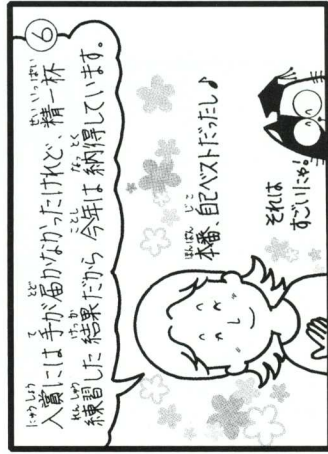 ⑥
入賞には手が届かなかったけれど、精一杯
練習した結果だから今年は納得しています。
本番、自己ベストだったし♪
それは
すごいにゃ!